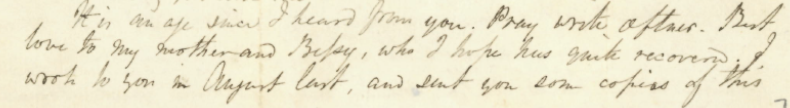 It is an age since I heard from you. Pray write oftner. Best
love to my mother and Bessy, who I hope has quite recovered. I
wrote to you in August last, and sent you some copies of this